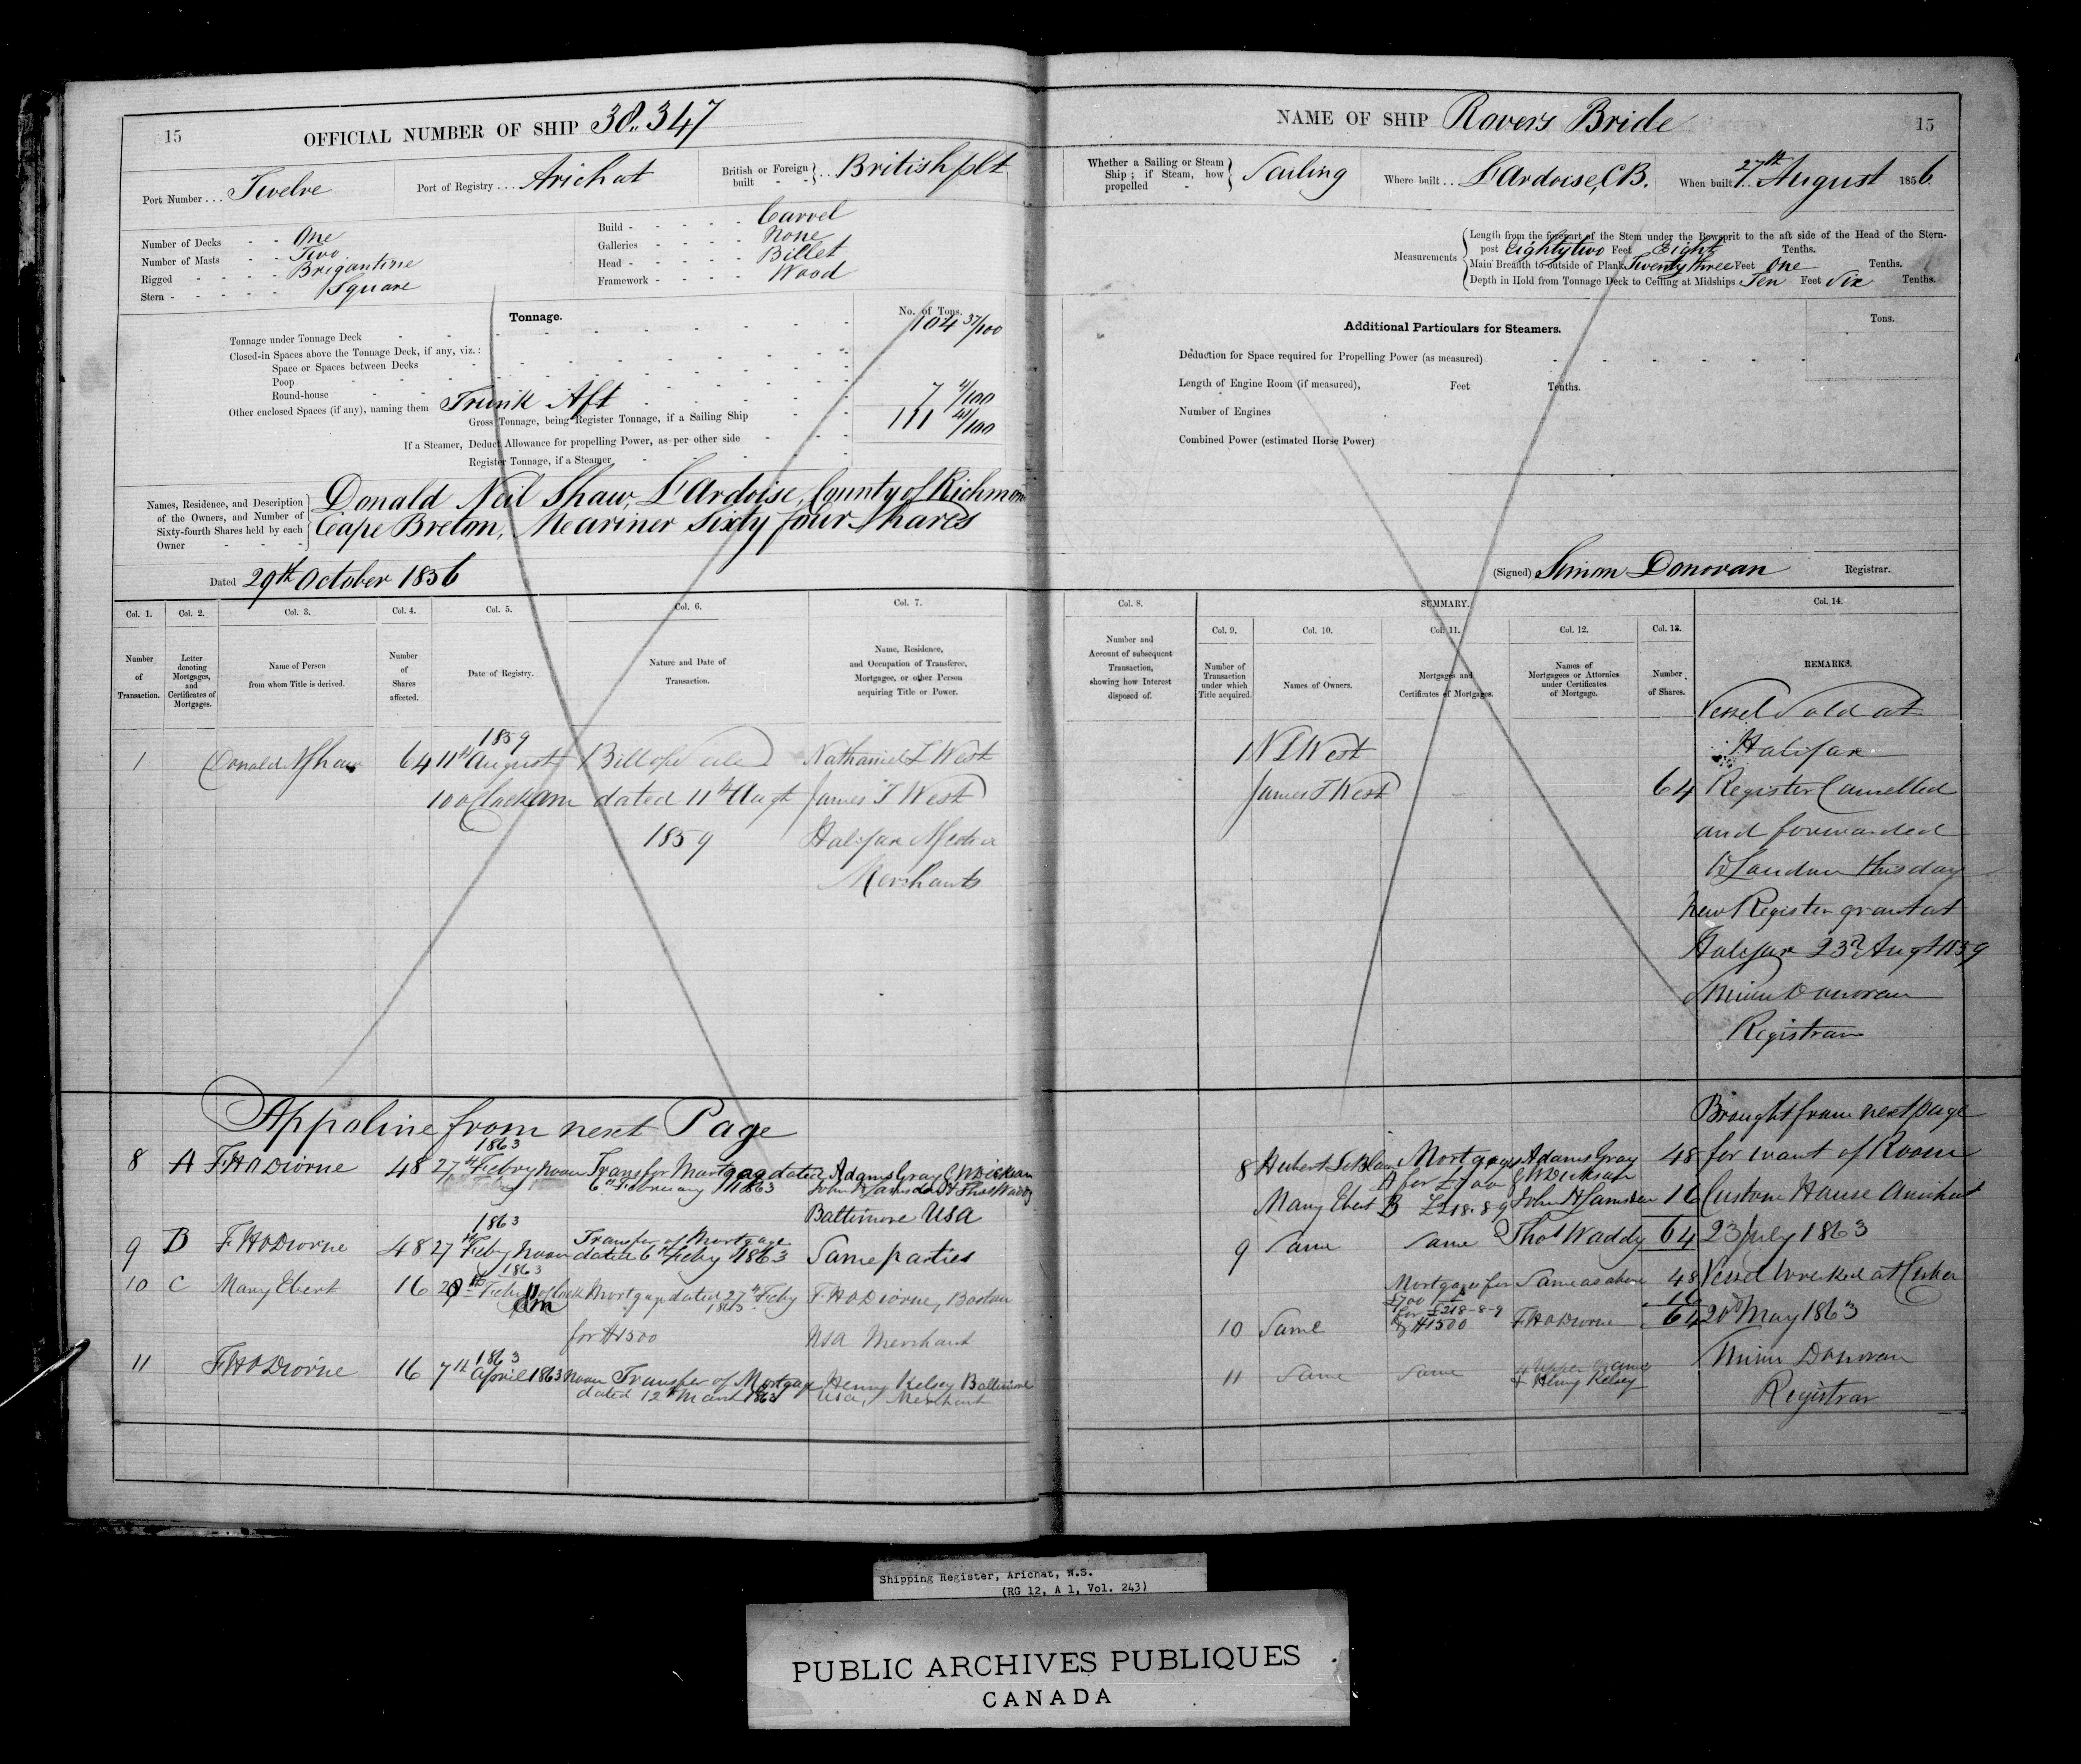 15
OFFICIAL NUMBER OF SHIP 38.. 347
Port Number . . . Twelve
Port of Registry . . . Arichat
British or Foreign built - - } . . British plt
Number of Decks - - One
Number of Masts - - Two
Rigged - - - - Brigantine
Stern - - - - - Square
Build - - - - - Carvel
Galleries - - - - None
Head - - - - - Billet
Framework - - - - Wood
Tonnage.
No. of Tons.
Tonnage under Tonnage Deck - - 104 37/100
Closed-in Spaces above the Tonnage Deck, if any, viz.:
Space or Spaces between Decks
Poop
Round-house
Other enclosed Spaces (if any), naming them Trunk Aft 7 4/100
Gross Tonnage, being Register Tonnage, if a Sailing Ship 111 41/100
If a Steamer, Deduct Allowance for propelling Power, as per other side
Register Tonnage, if a Steamer
Names, Residence, and Description of the Owners, and Number of Sixty-fourth Shares held by each Owner
Donald Neil Shaw, L'Ardoise, County of Richmon
Cape Breton, Meariner Sixty four Shares
Dated 29th October 1856
Col. 1. Col. 2. Col. 3. Col. 4. Col. 5. Col. 6. Col. 7.
Number of Transaction.
Letter denoting Mortgages, and Certificates of Mortgages.
Name of Person from whom Title is derived.
Number of Shares affected.
Date of Registry.
Nature and Date of Transaction.
Name, Residence, and Occupation of Transferee, Mortgagee, or other Person acquiring Title or Power.
1859
1 Donald N Shaw 64 11th August Bill of Sale Nathaniel L West
10 o Clock am dated 11th Augt James T West
1859 Halifax
Merchants
Appoline from next Page
1863
8 A F. H Odiorne 48 27th Febry Noon Transfer Mortgage dated Adams Gray C W Dickson
6th February 1863 John H Lamsden Thos Waddy
Baltimore USA
1863
9 B F. H Odiorne 48 27th Feby Noon Transfer of Mortgage
dated 6th Feby 1863 Same parties
1863
10 C Mary Ebert 16 28th Feby oclock Mortgage dated 27th Feby F. H Odiorne, Boston
am 1863
for $1500 USA Merchant
1863
11 F. H Odiorne 16 7th April 1863 Noon Transfer of Mortgage Henry Kelsey Baltimore
dated 12th March 1863 USA, Merchant
NAME OF SHIP Rovers Bride
15
Whether a Sailing or Steam Ship; if Steam, how propelled - } Sailing
Where built . . L'Ardoise, CB.
When built . . 27th August 1856.
Measurements
Length from the forepart of the Stem under the Bowsprit to the aft side of the Head of the Stern-
post Eighty two Feet Eight Tenths.
Main Breadth to outside of Plank Twenty three Feet One Tenths.
Depth in Hold from Tonnage Deck to Ceiling at Midships Ten Feet Six Tenths.
Additional Particulars for Steamers.
Tons.
Deduction for Space required for Propelling Power (as measured)
Length of Engine Room (if measured), Feet Tenths.
Number of Engines
Combined Power (estimated Horse Power)
(Signed) Simon Donovan Registrar.
SUMMARY.
Col. 8. Col. 9. Col. 10. Col. 11. Col. 12. Col. 13. Col. 14.
Number and Account of subsequent Transaction, showing how Interest disposed of.
Number of Transaction under which Title acquired.
Names of Owners.
Mortgages and Certificates of Mortgages.
Names of Mortgagees or Attornies under Certificates of Mortgage.
Number of Shares.
REMARKS.
1 N L West
James T West 64
Vessel Sold at
Halifax
Register Cancelled
and forwarded
to London this day
new Register grant at
Halifax 23rd Augt 1859
Simon Donovan
Registrar
8 Hubert LeBlanc Mortgages Adams Gray 48
A for £700 C W Dickson
Mary Ebert B £218-8-9 John H Lamsden 16
9 Same Same Thos Waddy 64
Mortgages for Same as above 48
£700 A
for £218-8-9 16
10 Same $1500 F H Odiorne 64
11 Same Same
Henry Kelsey
Brought from next page
for want of Room
Custom House Arichat
23 July 1863
Vessel wrecked at Cuba
20th May 1863
Simon Donovan
Registrar
Shipping Register, Arichat, N.S.
(RG 12, A 1, Vol. 243)
PUBLIC ARCHIVES PUBLIQUES
CANADA